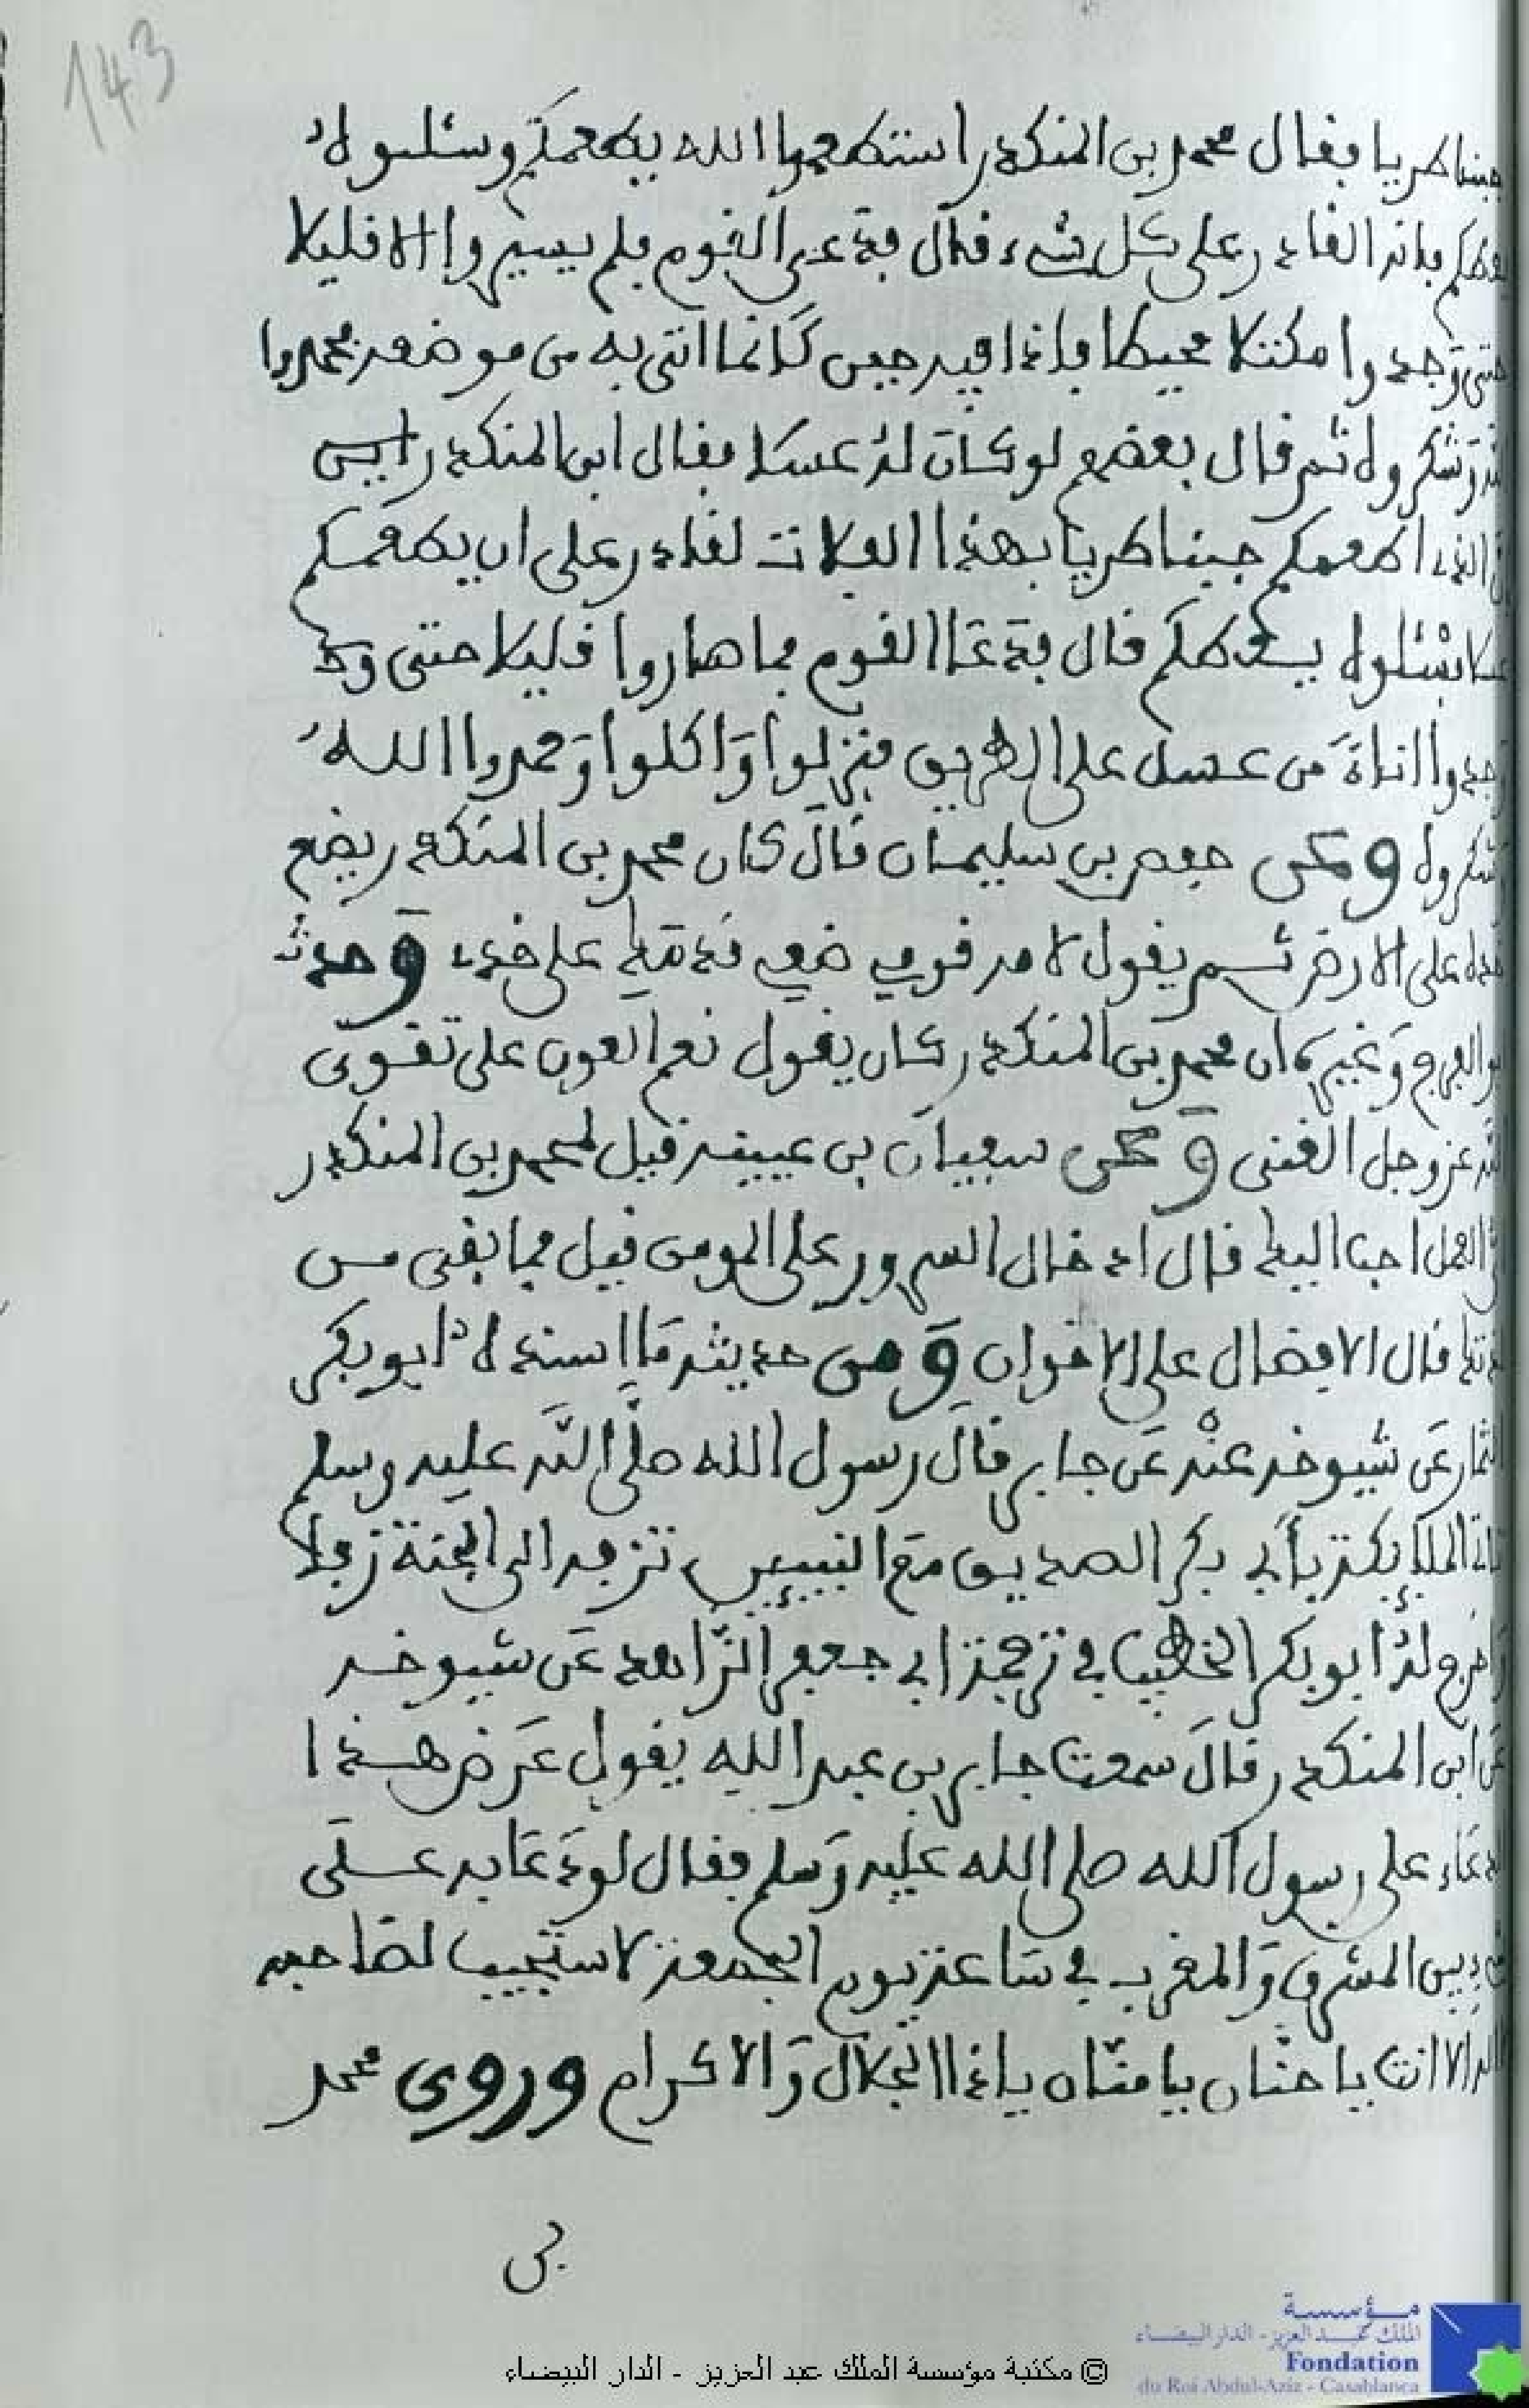 143
جبنا طريا فقال محمد بن المنكدر استطعموا الله يطعمكم وسئلوه
يعطكم فانه القادر على كل شيء قال فدعى القوم فلم يسيروا الا قليلا
حتى وجدوا مكتلا مخيطا فاذا فيه جبن كانما اتى به من موضعه فحمدوا
الله وشكروه ثم قال بعضهم لو كان له عسلا فقال ابن المنكدر اليس
الذي اطعمكم جبنا طريا بهذا الفلات لقادر على ان يطعمكم
عسلا فسئلوه يعطكم قال فدعا القوم فما صاروا قليلا حتى وجد
وجدوا اناة من عسل على الطريق فنزلوا واكلوا وحمدوا الله
وشكروه وحكى جعفر بن سليمان قال كان محمد بن المنكدر يضع
خده على الارض ثم يقول لامه قومي ضعي قدمك على خدي وحدث
ابو الفرج وغيره ان محمد بن المنكدر كان يقول نعم العون على تقوى
الله عز وجل الغنى وحكى سفيان بن عيينه قيل لمحمد بن المنكدر
اي العمل احب اليك قال ادخال السرور على المومن قيل فما بقى من
لذتك قال الافضال على الاخوان ومن حديثه ما اسنده له ابو بكر
عن شيوخه عنه عن جابر قال رسول الله صلى الله عليه وسلم
الملائكة بأبي بكر الصديق مع النبيين تزفه الى الجنة زفا
واخرج له ابو بكر الخطيب في ترجمة ابي جعفر الزاهد عن شيوخه
عن ابن المنكدر قال سمعت جابر بن عبد الله يقول عرض هذا
الدعاء على رسول الله صلى الله عليه وسلم فقال لو دعا به على
بين المشرق والمغرب في ساعة يوم الجمعة لاستجيب لصاحبه
الا انت يا حنان يا منان يا ذا الجلال والاكرام وروى محمد
بن
مؤسسة
الملك عبد العزيز - الدار البيضاء
Fondation
du Roi Abdul-Aziz - Casablanca
© مكتبة مؤسسة الملك عبد العزيز - الدار البيضاء